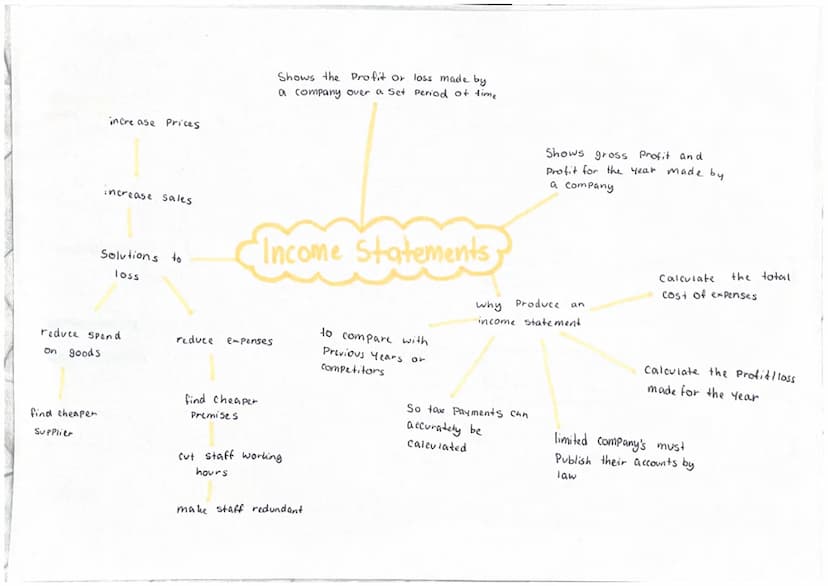 Shows the Profit or loss made by
a company over a set period of time
increase prices
Shows gross Profit and
Profit for the year made by
a company
increase sales
Income Statements
Solutions to
loss
Calculate the total
cost of expenses
why Produce an
income statement
reduce spend
on goods
reduce expenses
to compare with
Previous years or
competitors
Calculate the Profit/loss
made for the year
find cheaper
supplier
find cheaper
Premises
So tax Payments can
accurately be
calculated
limited company's must
Publish their accounts by
law
cut staff working
hours
make staff redundant